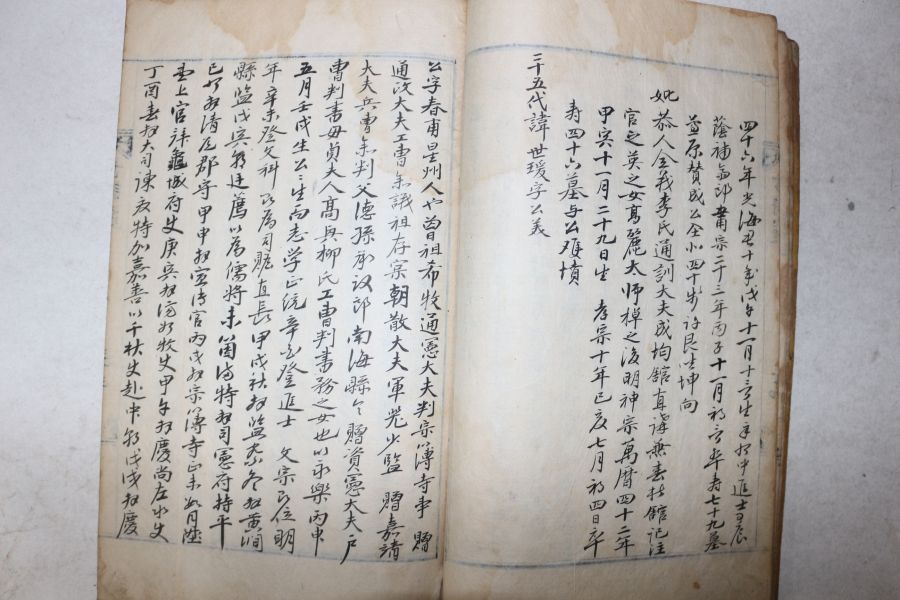 四十六年光海君十年戊午十一月十三日生 中進士
蔭補 肅宗二十三年丙子十一月初 卒壽七十九墓
原贊成公 四十步許艮坐坤向
妣 恭人全義李氏通訓大夫成均館直講兼春秋館記注
官之英之女高麗太師棹之後明神宗萬曆四十二年
甲寅十一月二十九日生 孝宗十年己亥七月初四日卒
壽四十六墓与公雙墳
三十五代諱 世瑗字公美
公字春甫星州人也曾祖希牧通憲大夫判宗簿寺事 贈
通政大夫工曹參議祖存宗朝散大夫軍 少監 贈嘉靖
大夫兵曹參判父德孫承議郎南海縣令 贈資憲大夫戶
曹判書母貞夫人高興柳氏工曹判書務之女也以永樂丙申
五月壬戌生公公生而志学正統辛酉登進士 文宗即位明
年辛未登文科 即爲司贍直長甲戌秋 監察冬 黃澗
縣監戊寅 廷薦以爲儒將未 滿特 司憲府持平
已 清 郡守甲申 宣傳官丙戌 宗簿寺正未 月陞
堂上官拜 城府史庚寅 牧史甲午 慶尚左水史
丁酉春 大司諫 特加嘉善以千秋史赴中 戊戌 慶